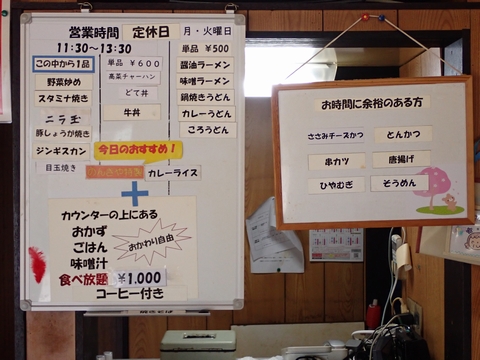 営業時間 定休日 月・火曜日
11:30～13:30
この中から1品
野菜炒め
スタミナ焼き
ニラ玉
豚しょうが焼き
ジンギスカン
目玉焼き
単品 ¥600
高菜チャーハン
どて丼
牛丼
単品 ¥500
醤油ラーメン
味噌ラーメン
鍋焼きうどん
カレーうどん
ころうどん
今日のおすすめ！
カレーライス
+
カウンターの上にある
おかず
ごはん
味噌汁
おかわり自由
食べ放題 ¥1.000
コーヒー付き
お時間に余裕のある方
ささみチーズかつ
とんかつ
串カツ
唐揚げ
ひやむぎ
そうめん